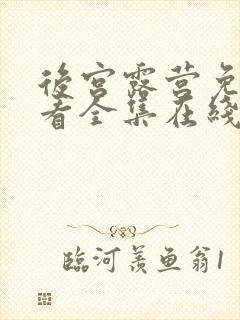 後宫露营免
看全集在线
臨河羨魚翁1